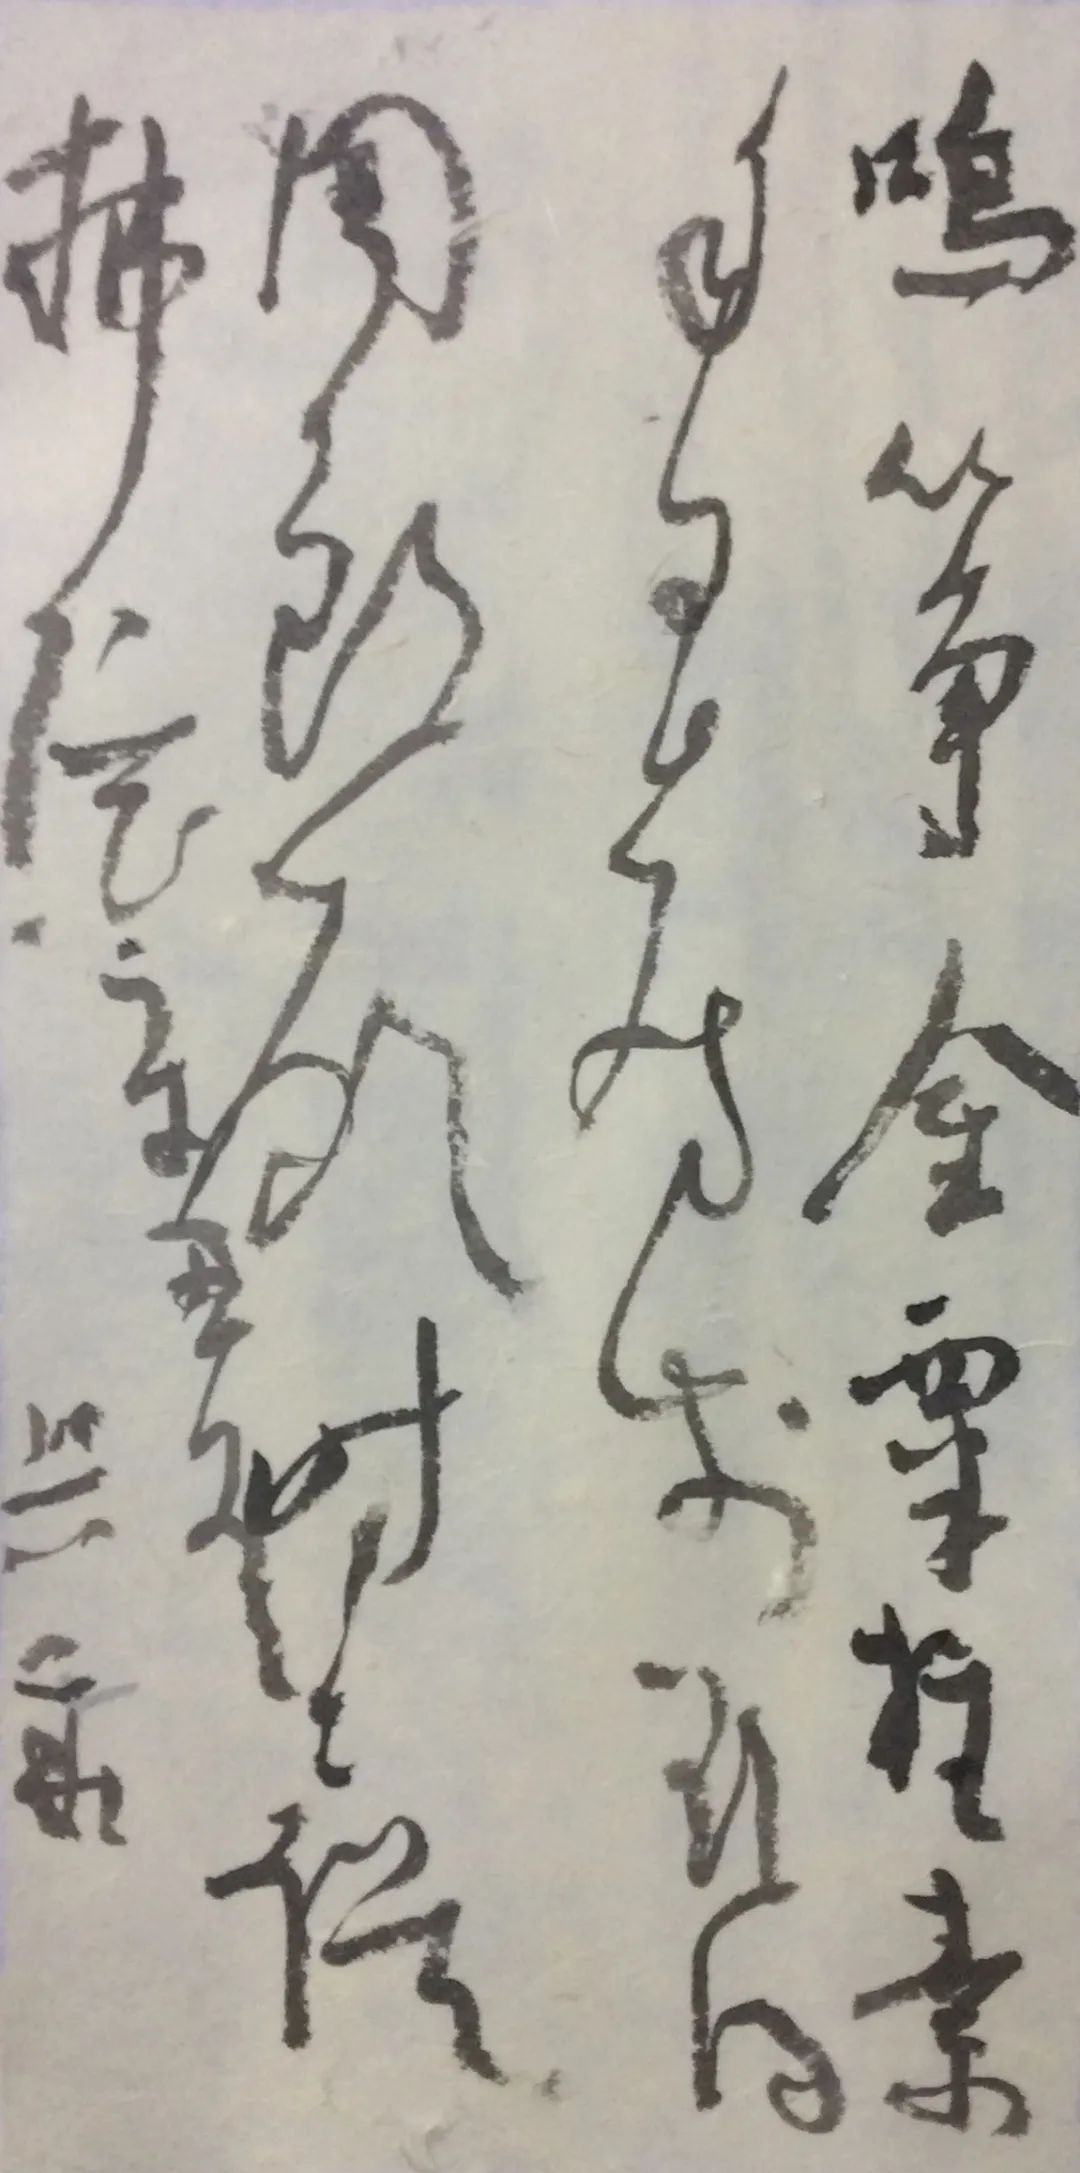 鳴筝金粟柱素
手玉房前欲得
周郎顧時〻誤
拂弦